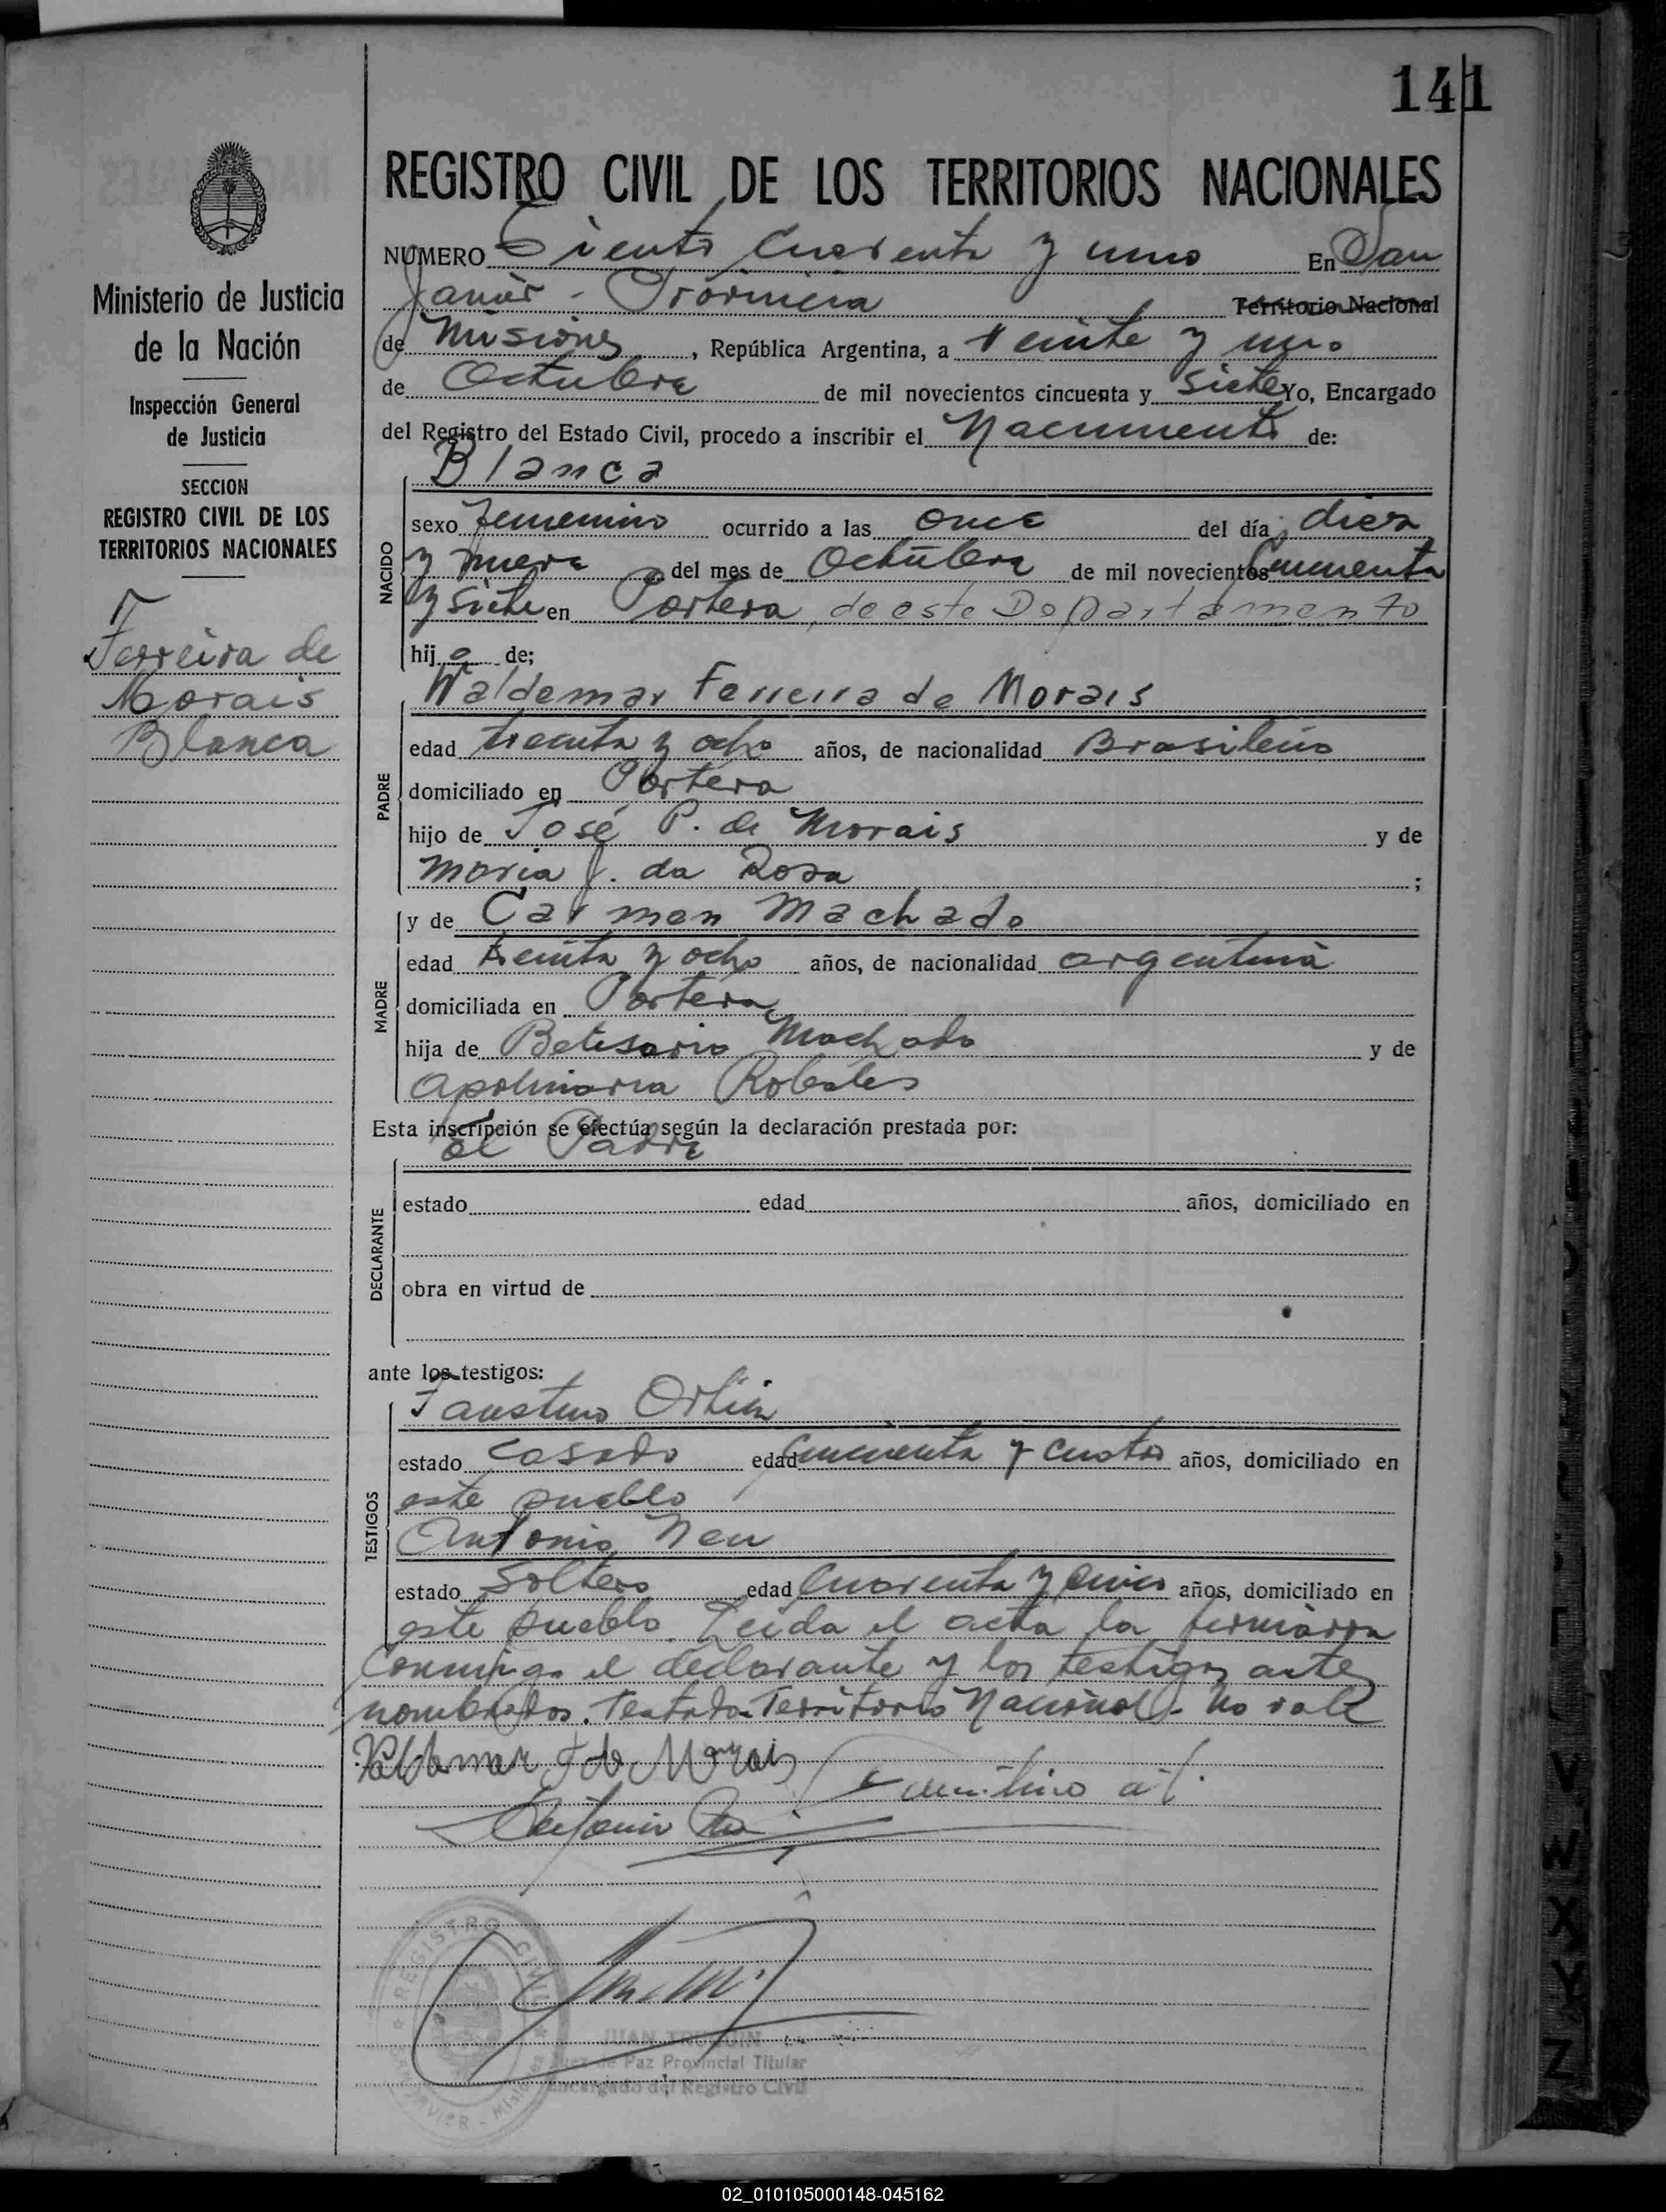 141
REGISTRO CIVIL DE LOS TERRITORIOS NACIONALES
Ministerio de Justicia
de la Nación
Inspección General
de Justicia
SECCION
REGISTRO CIVIL DE LOS
TERRITORIOS NACIONALES
F
Ferreira de
Morais
Blanca
NUMERO Ciento Cuarenta y uno En San
Javier - Provincia Territorio Nacional
de Misiones, República Argentina, a Veinte y uno
de Octubre de mil novecientos cincuenta y siete Yo, Encargado
del Registro del Estado Civil, procedo a inscribir el Nacimiento de:
Blanca
NACIDO
sexo femenino ocurrido a las once del día diez
y nueve del mes de Octubre de mil novecientos cincuenta
y siete en Portera, de este Departamento
hija de;
Waldemar Ferreira de Morais
PADRE
edad treinta y ocho años, de nacionalidad Brasileño
domiciliado en Portera
hijo de José P. de Morais y de
Maria J. da Rosa ;
y de Carmen Machado
MADRE
edad treinta y ocho años, de nacionalidad argentina
domiciliada en Portera
hija de Belisario Machado y de
Apolinaria Robales
Esta inscripción se efectúa según la declaración prestada por:
El Padre
DECLARANTE
estado edad años, domiciliado en
obra en virtud de
ante los testigos:
TESTIGOS
Faustino
estado casado edad cincuenta y cuatro años, domiciliado en
este pueblo
Antonio Neu
estado Soltero edad Cuarenta y cinco años, domiciliado en
este pueblo. Leida el acta la firmaron
conmigo el declarante y los testigos antes
nombrados. Testado Territorio Nacional - no vale
Valdemar F de Morais
Antonio
REGISTRO CIVIL
Juez de Paz Provincial Titular
Encargado del Registro Civil
02_010105000148-045162